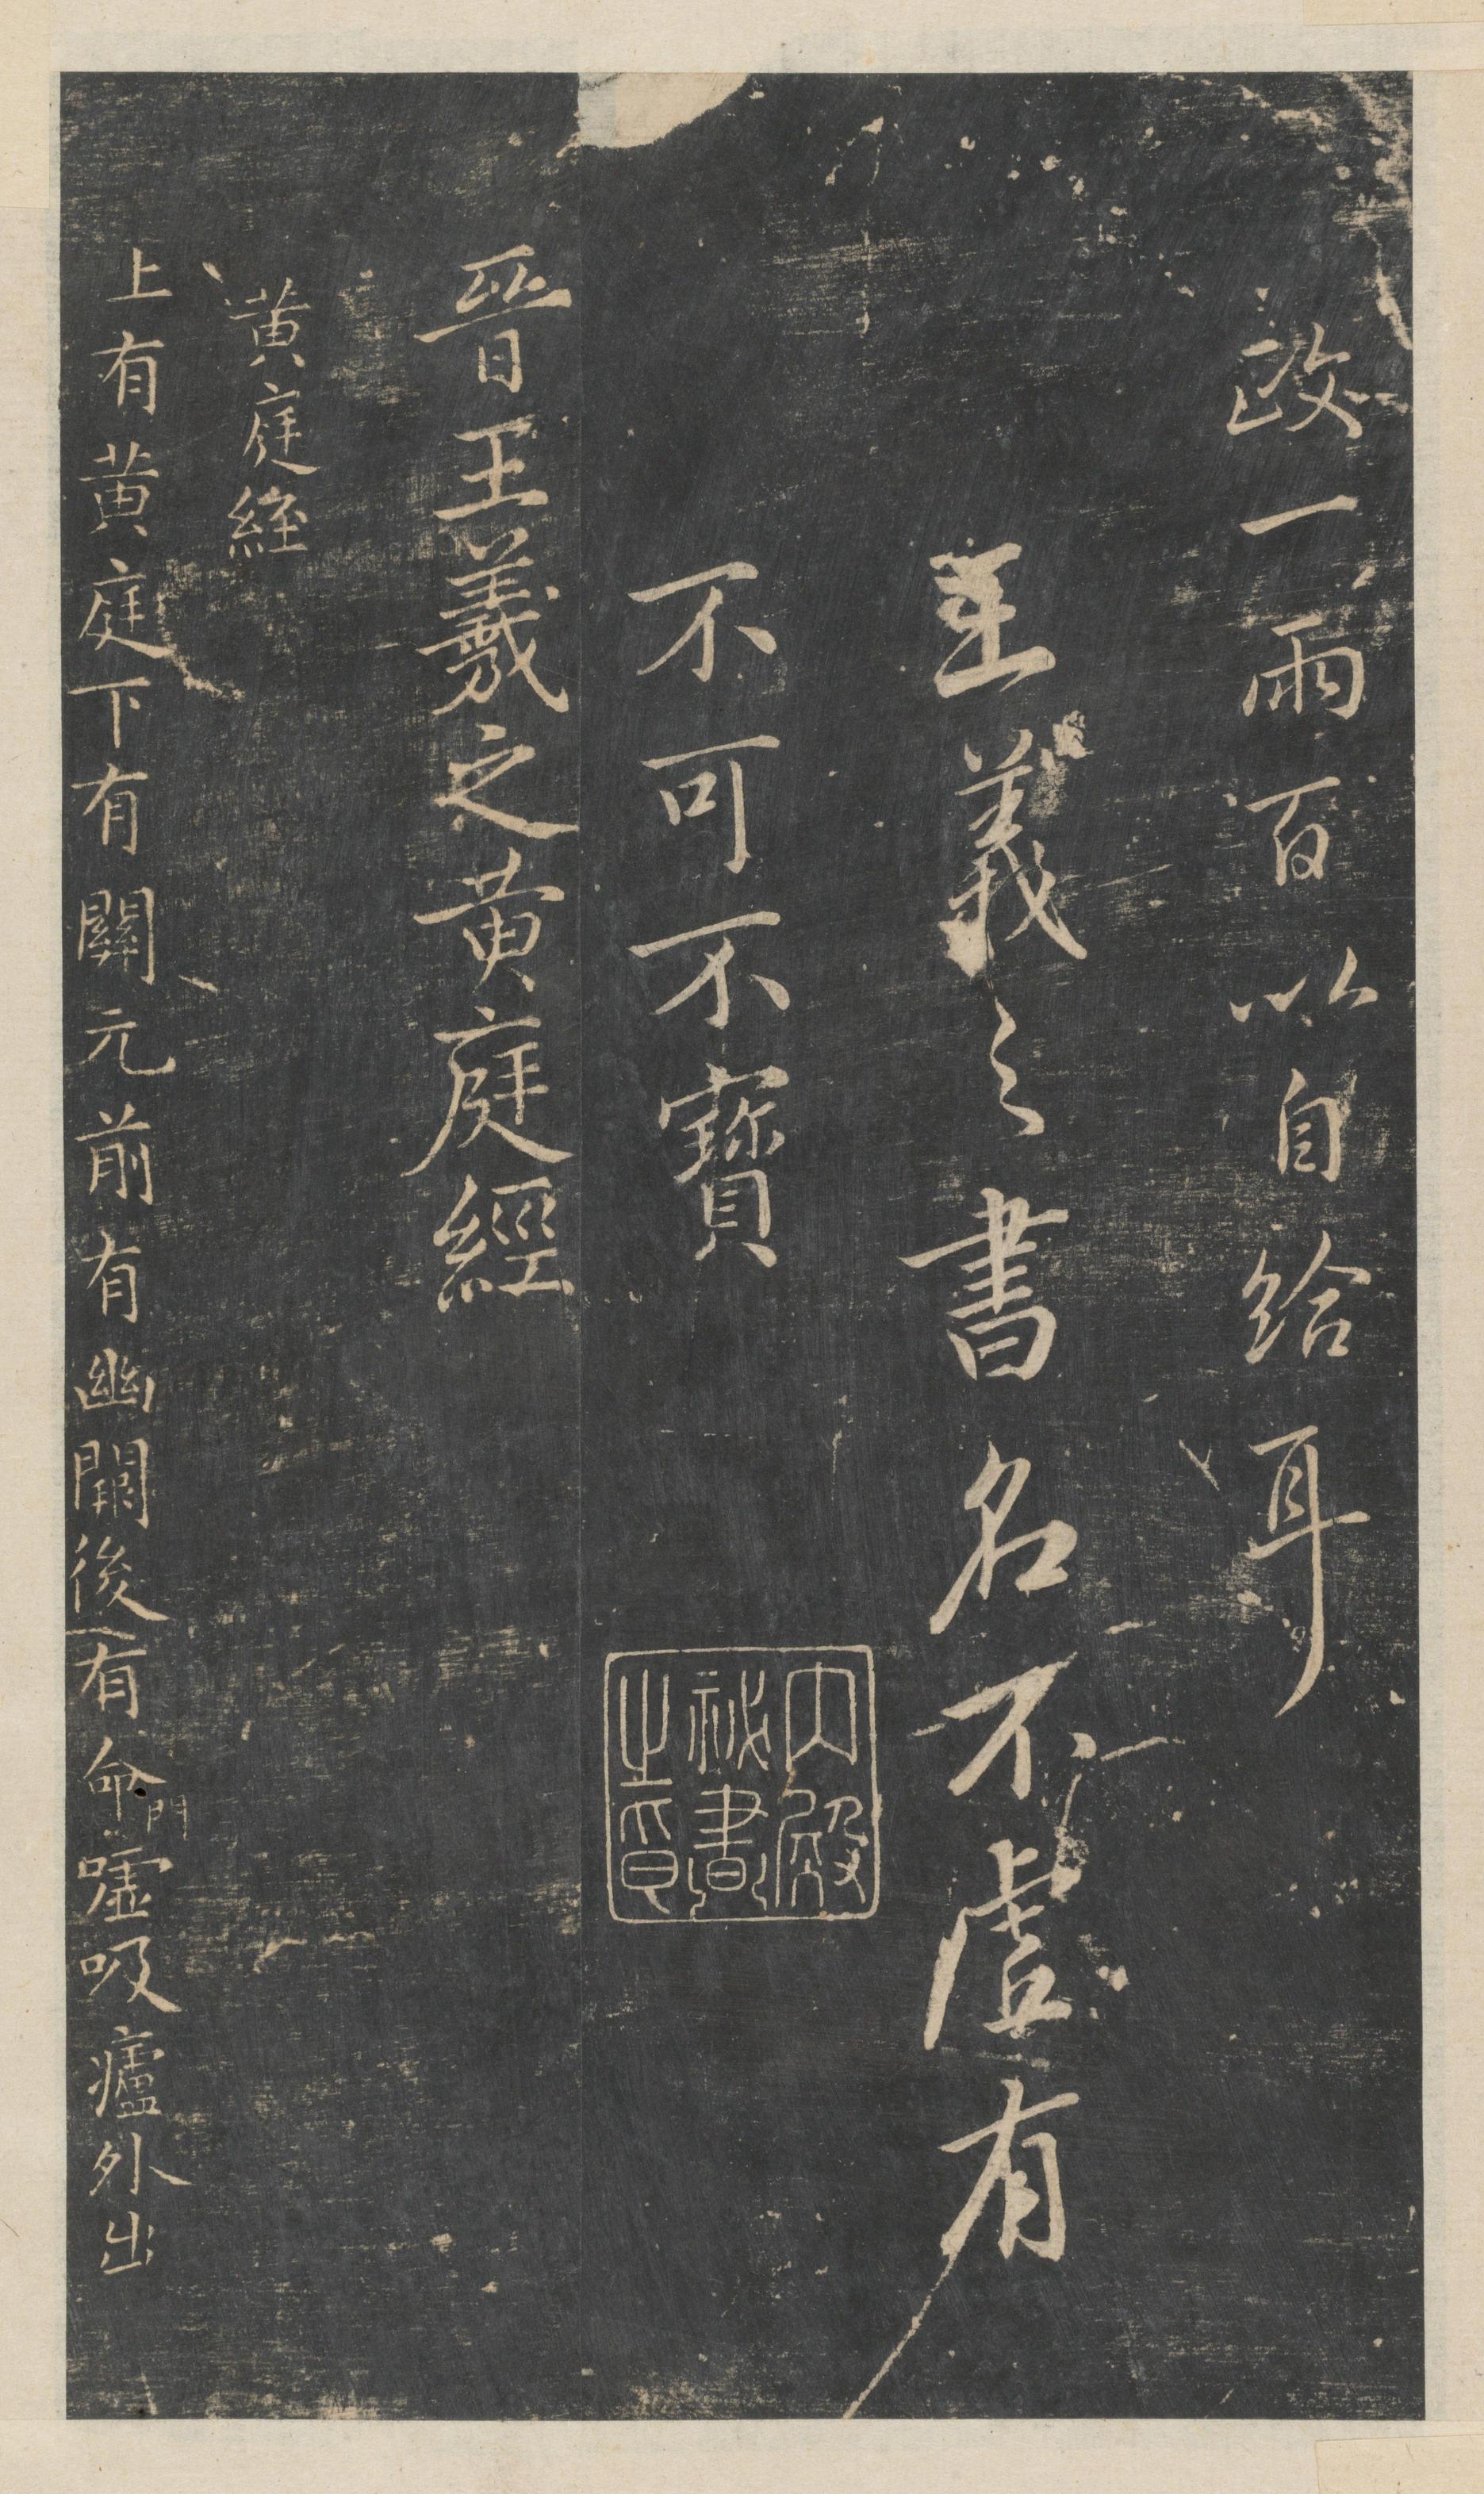 改一兩百以自給耳
王羲之書名不虛有
不可不寶
内殿
祕書
之印
晉王羲之黃庭經
黃庭經
上有黃庭下有關元前有幽闕後有命門噓吸廬外出